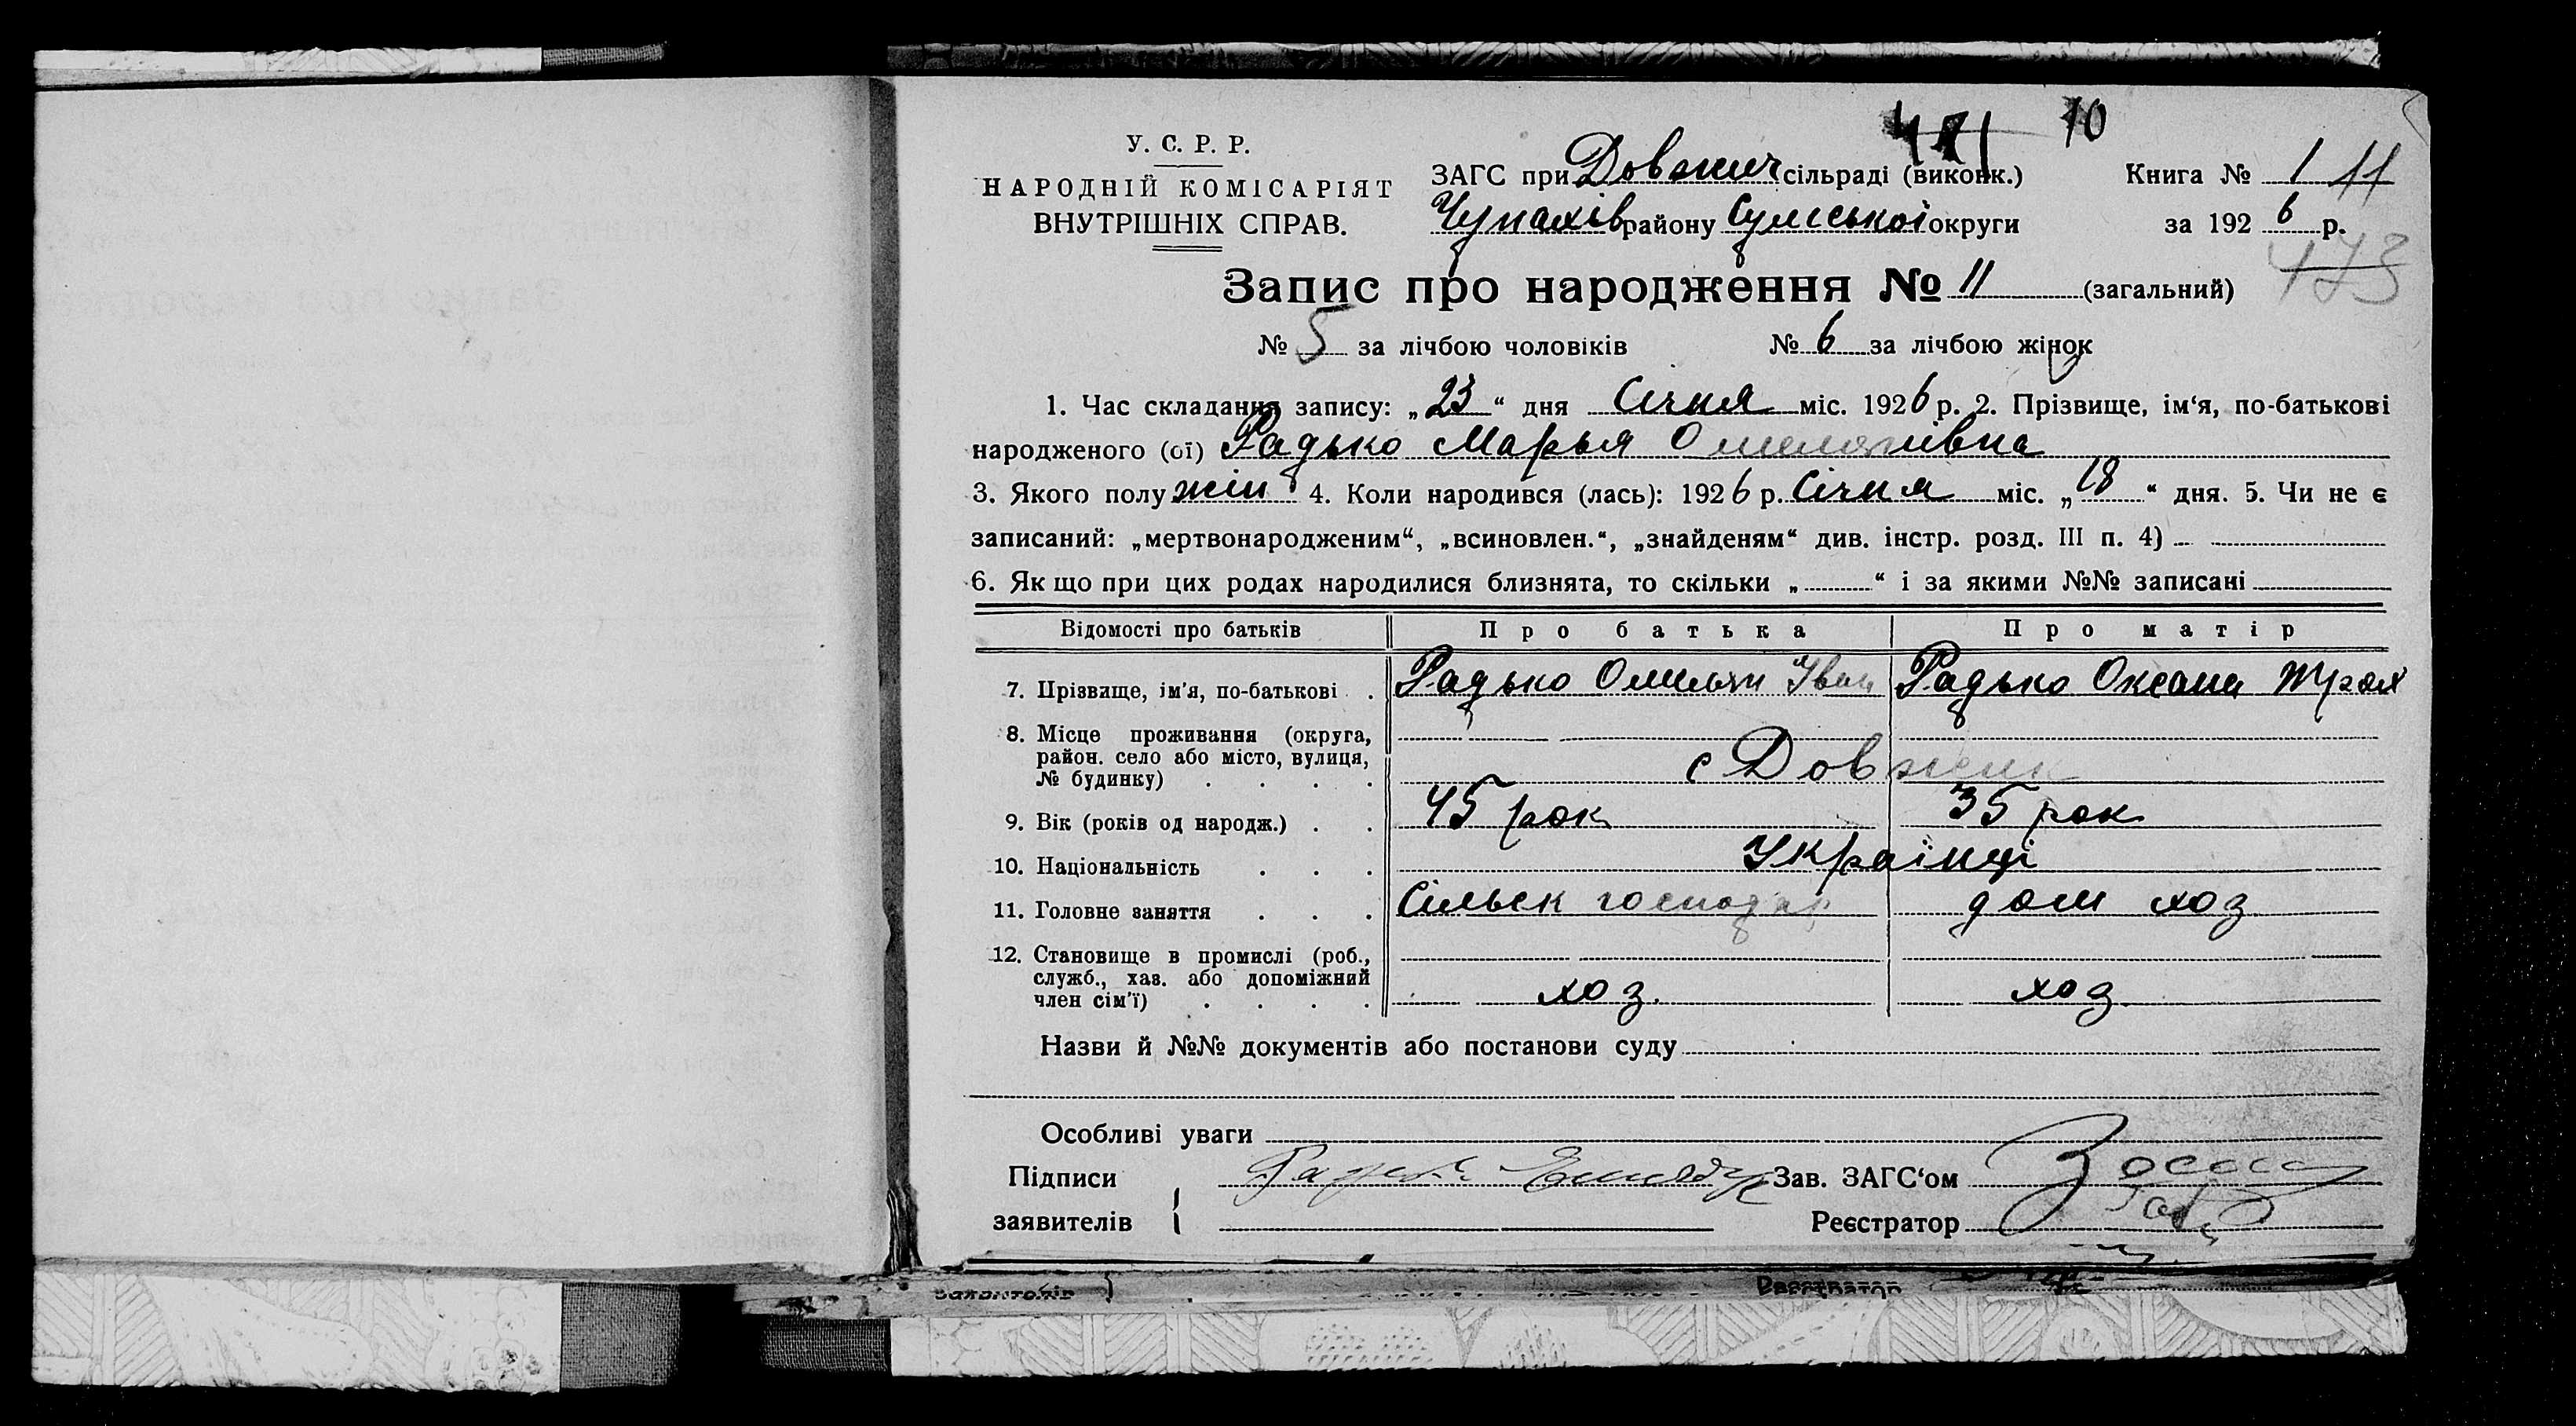 70
У. С. Р. Р.
НАРОДНІЙ КОМІСАРІЯТ
ВНУТРІШНІХ СПРАВ.
ЗАГС при Довжич сільраді (виконк.) Книга № 1 11
Чупахів району Сумської округи за 1926 р.
473
Запис про народження № 11 (загальний)
№ 5 за лічбою чоловіків № 6 за лічбою жінок
1. Час складання запису: „23“ дня Січня міс. 1926 р. 2. Прізвище, ім‘я, по-батькові
народженого (ої) Радько Марья Омелянівна
3. Якого полу жін 4. Коли народився (лась): 1926 р. Січня міс. „18“ дня. 5. Чи не є
записаний: „мертвонародженим“, „всиновлен.“, „знайденям“ див. інстр. розд. III п. 4)
6. Як що при цих родах народилися близнята, то скільки „ “ і за якими №№ записані
Відомості про батьків Про батька Про матір
7. Прізвище, ім'я, по-батькові Радько Омельян Іван Радько Оксана
8. Місце проживання (округа,
район. село або місто, вулиця,
№ будинку) с Довжик
9. Вік (років од народж.) 45 рок 35 рок
10. Національність Українці
11. Головне заняття Сільск господар дом хоз
12. Становище в промислі (роб.,
служб., хаз. або допоміжний
член сім'ї) хоз. хоз.
Назви й №№ документів або постанови суду
Особливі уваги
Підписи Зав. ЗАГС‘ом
заявителів Реєстратор
Реєстратор